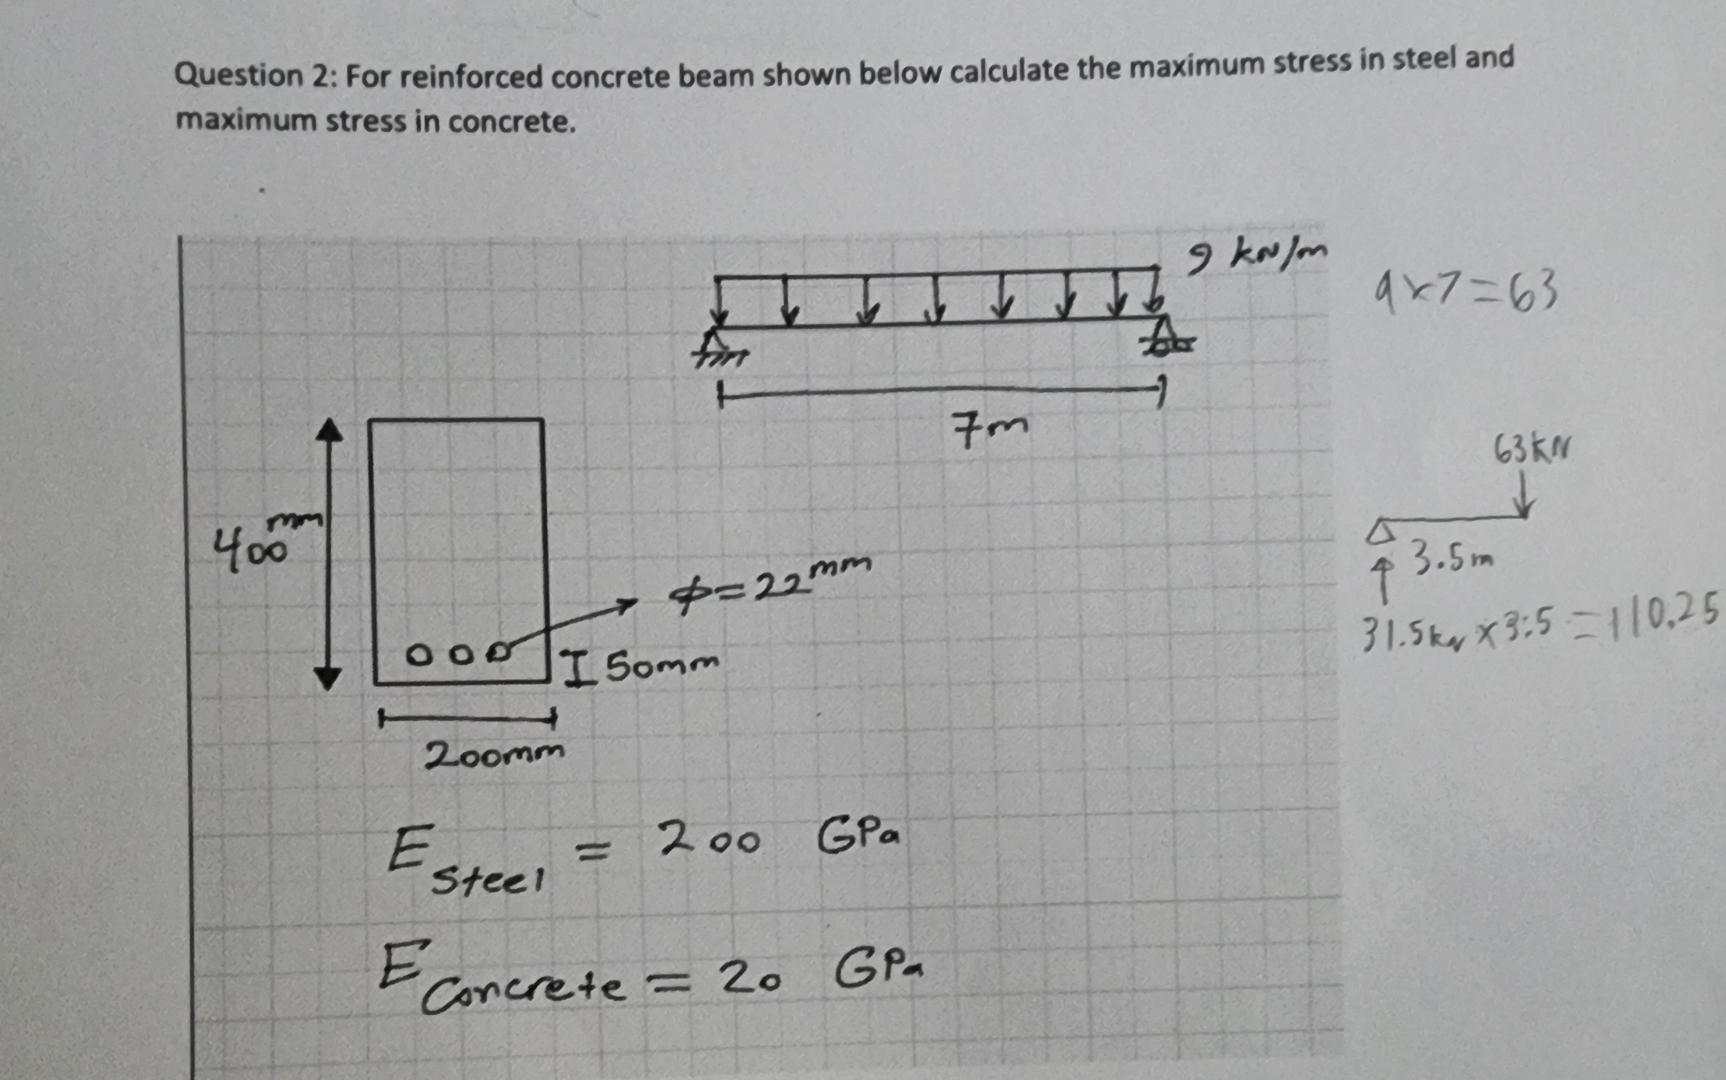 Question 2: For reinforced concrete beam shown below calculate the maximum stress in steel and
maximum stress in concrete.
9 kN/m
9x7=63
7m
63kN
400mm
3.5m
φ=22mm
31.5kN x 3.5 = 110.25
50mm
200mm
Esteel = 200 GPa
Econcrete = 20 GPa